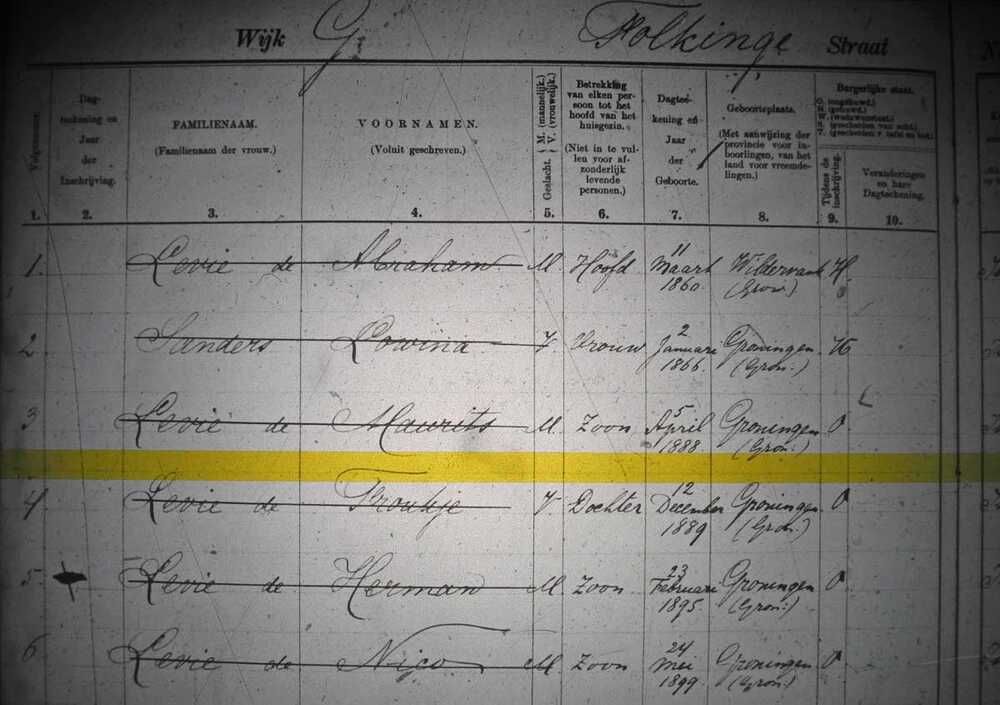 Wijk G. Folkinge Straat
Volgnummer.
Dag-
teekening en
Jaar
der
Inschrijving.
FAMILIENAAM.
(Familienaam der vrouw.)
VOORNAMEN.
(Voluit geschreven.)
Geslacht. M. (mannelijk.) V. (vrouwelijk.)
Betrekking
van elken per-
soon tot het
hoofd van het
huisgezin.
(Niet in te vul-
len voor af-
zonderlijk
levende
personen.)
Dagtee-
kening en
Jaar
der
Geboorte.
Geboorteplaats.
(Met aanwijzing der
provincie voor in-
boorlingen, van het
land voor vreemde-
lingen.)
Burgerlijke staat.
O. (ongehuwd.)
H. (gehuwd.)
W. (weduwestaat.)
S. (gescheiden van echt.)
T. (gescheiden v. tafel en bed.)
Tijdens de
inschrijving.
Veranderingen
en hare
Dagteekening.
1. 2. 3. 4. 5. 6. 7. 8. 9. 10.
1. Levie de Abraham M. Hoofd 11 Maart 1860. Wildervank (Gron:) H.
2 Sanders Lowina V Vrouw 2 Januari 1866. Groningen (Gron:) H
3 Levie de Maurits M. Zoon 5 April 1888. Groningen (Gron:) O
4 Levie de Froukje V Dochter 12 December 1889 Groningen (Gron:) O
5 Levie de Herman M. Zoon 23 Februari 1895 Groningen (Gron:) O
6 Levie de Nico M. Zoon 24 Mei 1899 Groningen (Gron:) O